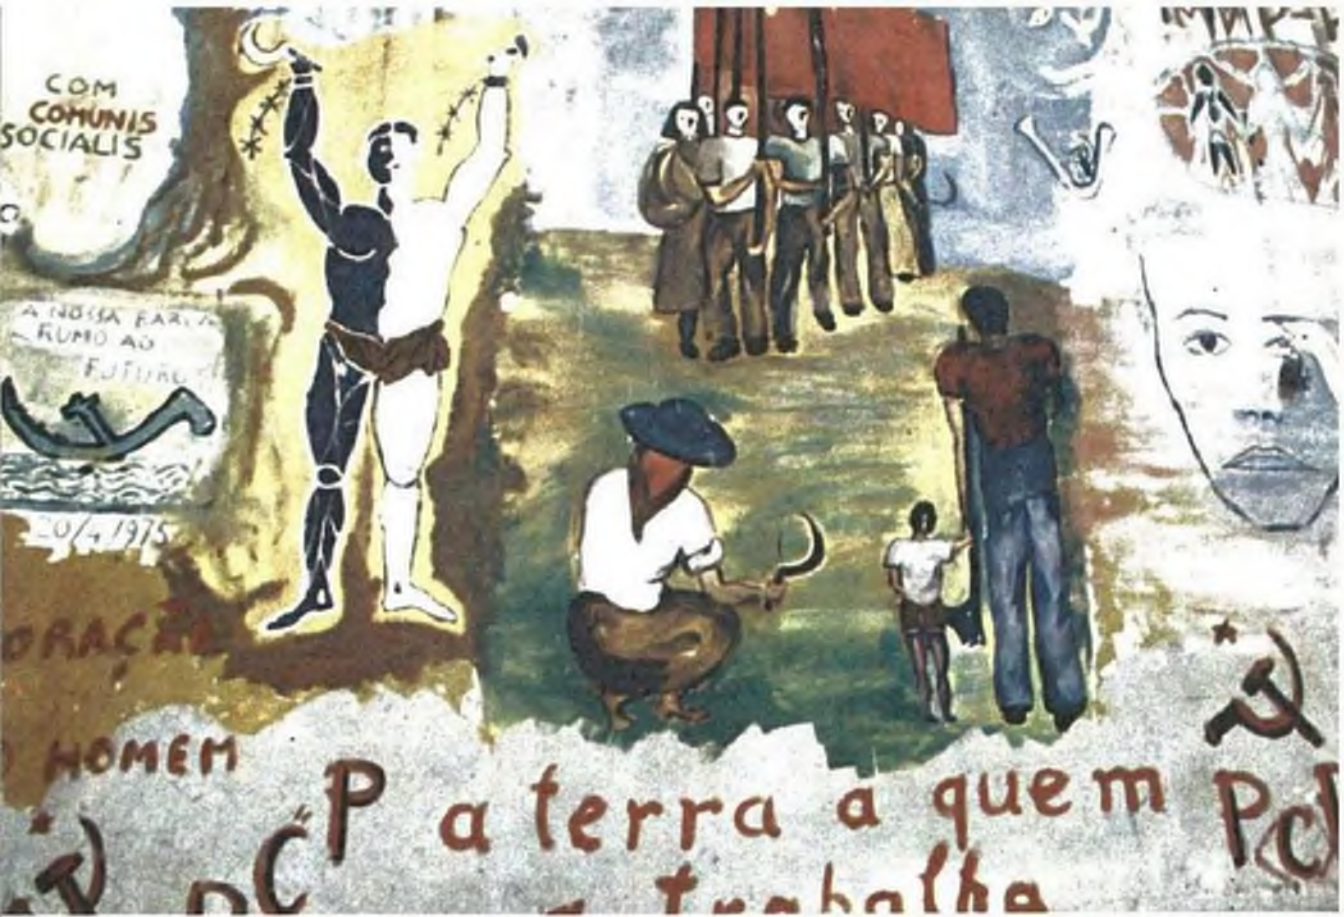 COM
COMUNIS
SOCIALIS
A NOSSA BARCA
RUMO AO
FUTURO
20/4/1975
ORAÇÃO
O HOMEM
P
a terra a quem
a trabalha
PC
PC